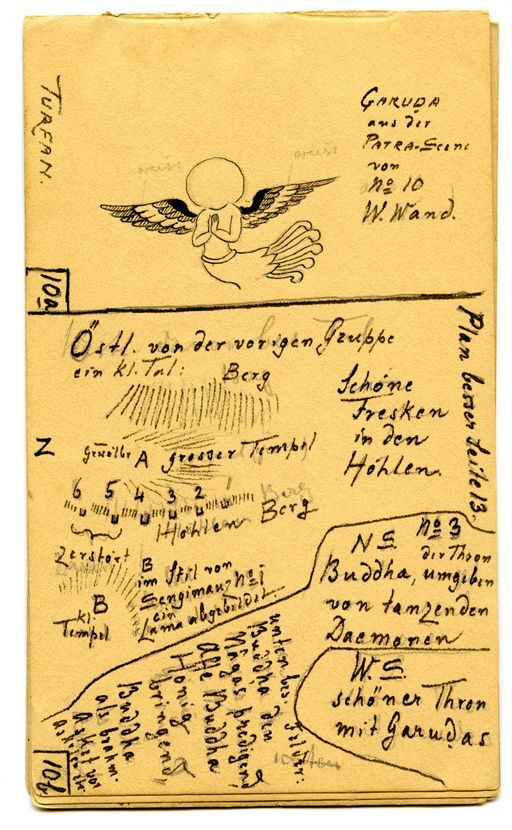 TURFAN.
GARUDA
aus der
PATRA-Scene
von
No 10
W. Wand.
weiss
weiss
10a
Östl. von der vorigen Gruppe
ein kl. Tal:
Berg
Schöne
Fresken
in den
Höhlen.
Plan besser Seite 13.
N
Gewölbe A grosser Tempel
6 5 4 3 2
Berg
Höhlen Berg
Zerstört
B
im Stil von
Sengimauz, No 1
ein
Lama abgebildet
B
kl.
Tempel
N S. No 3
der Thron
Buddha, umgeben
von tanzenden
Daemonen
W. S.
schöner Thron
mit Garuḍas
unten bes. Felder:
Buddha den
Nāgas predigend
Affe Buddha
Honig
bringend
Buddha
als brahm.
Asket vor
10b